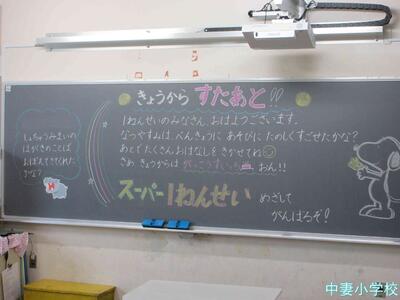 きょうから すたあと!!
1ねんせいのみなさん、おはようございます。
なつやすみは べんきょうに あそびに たのしくすごせたかな?
あとで たくさん おはなしを きかせてね
さあ きょうからは がっこうすいっち おん!!
スーパー1ねんせい めざして
がんばろぞ!
しょちゅうみまいの
はがきのことば
おぼえてきてくれた
かな?
中妻小学校